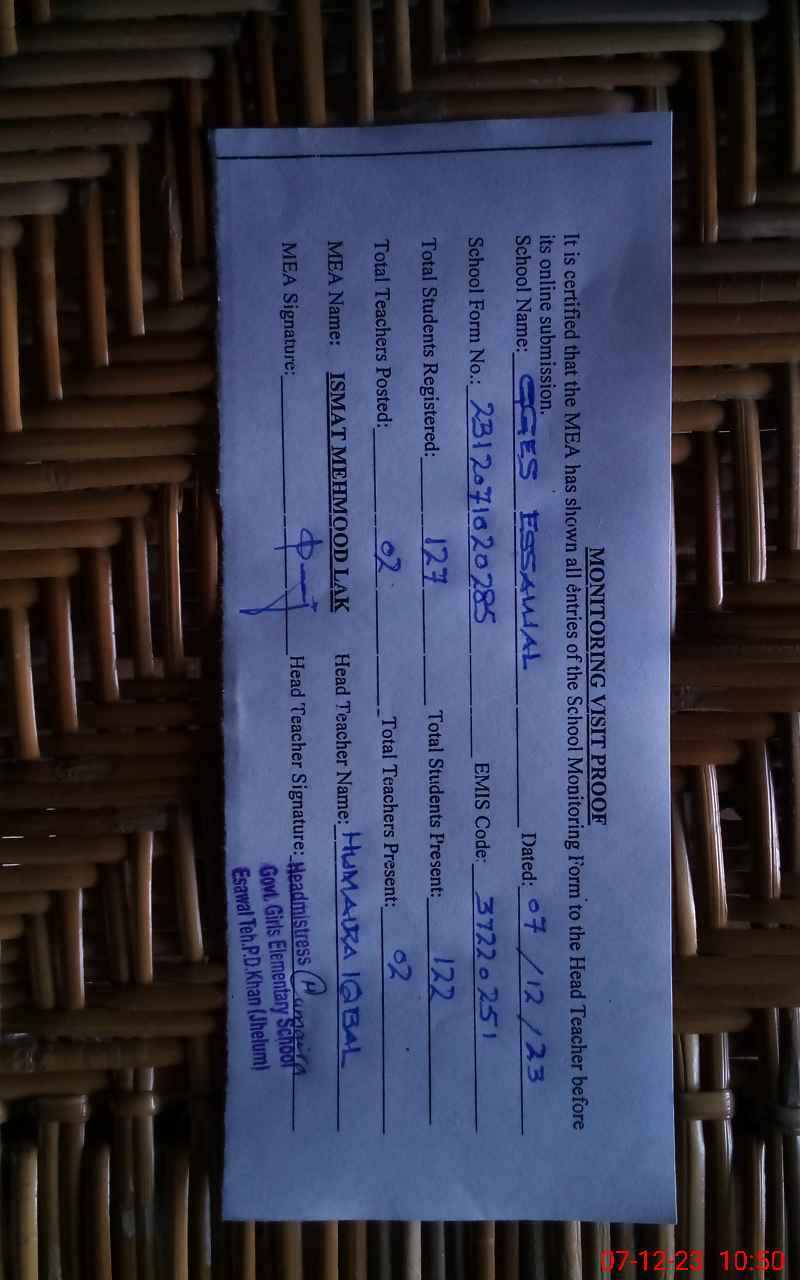 MONITORING VISIT PROOF
It is certified that the MEA has shown all entries of the School Monitoring Form to the Head Teacher before
its online submission.
School Name: GGES ESSAWAL Dated: 07/12/23
School Form No.: 231207102 0285 EMIS Code: 37220251
Total Students Registered: 127 Total Students Present: 122
Total Teachers Posted: 02 Total Teachers Present: 02
MEA Name: ISMAT MEHMOOD LAK Head Teacher Name: HUMAIRA IQBAL
MEA Signature: Head Teacher Signature: Humaira
Headmistress
Govt. Girls Elementary School
Esawal Teh.P.D.Khan (Jhelum)
07-12-23 10:50